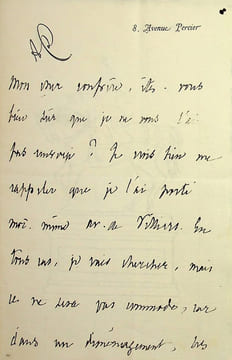 8, Avenue Percier
Mon cher confrère, êtes-vous
bien sûr que je ne vous l'ai
pas renvoyé ? Je crois bien me
rappeler que je l'ai porté
moi-même av. de Villiers. En
tous cas, je vais chercher, mais
ce ne sera pas commode, car
dans un déménagement, les